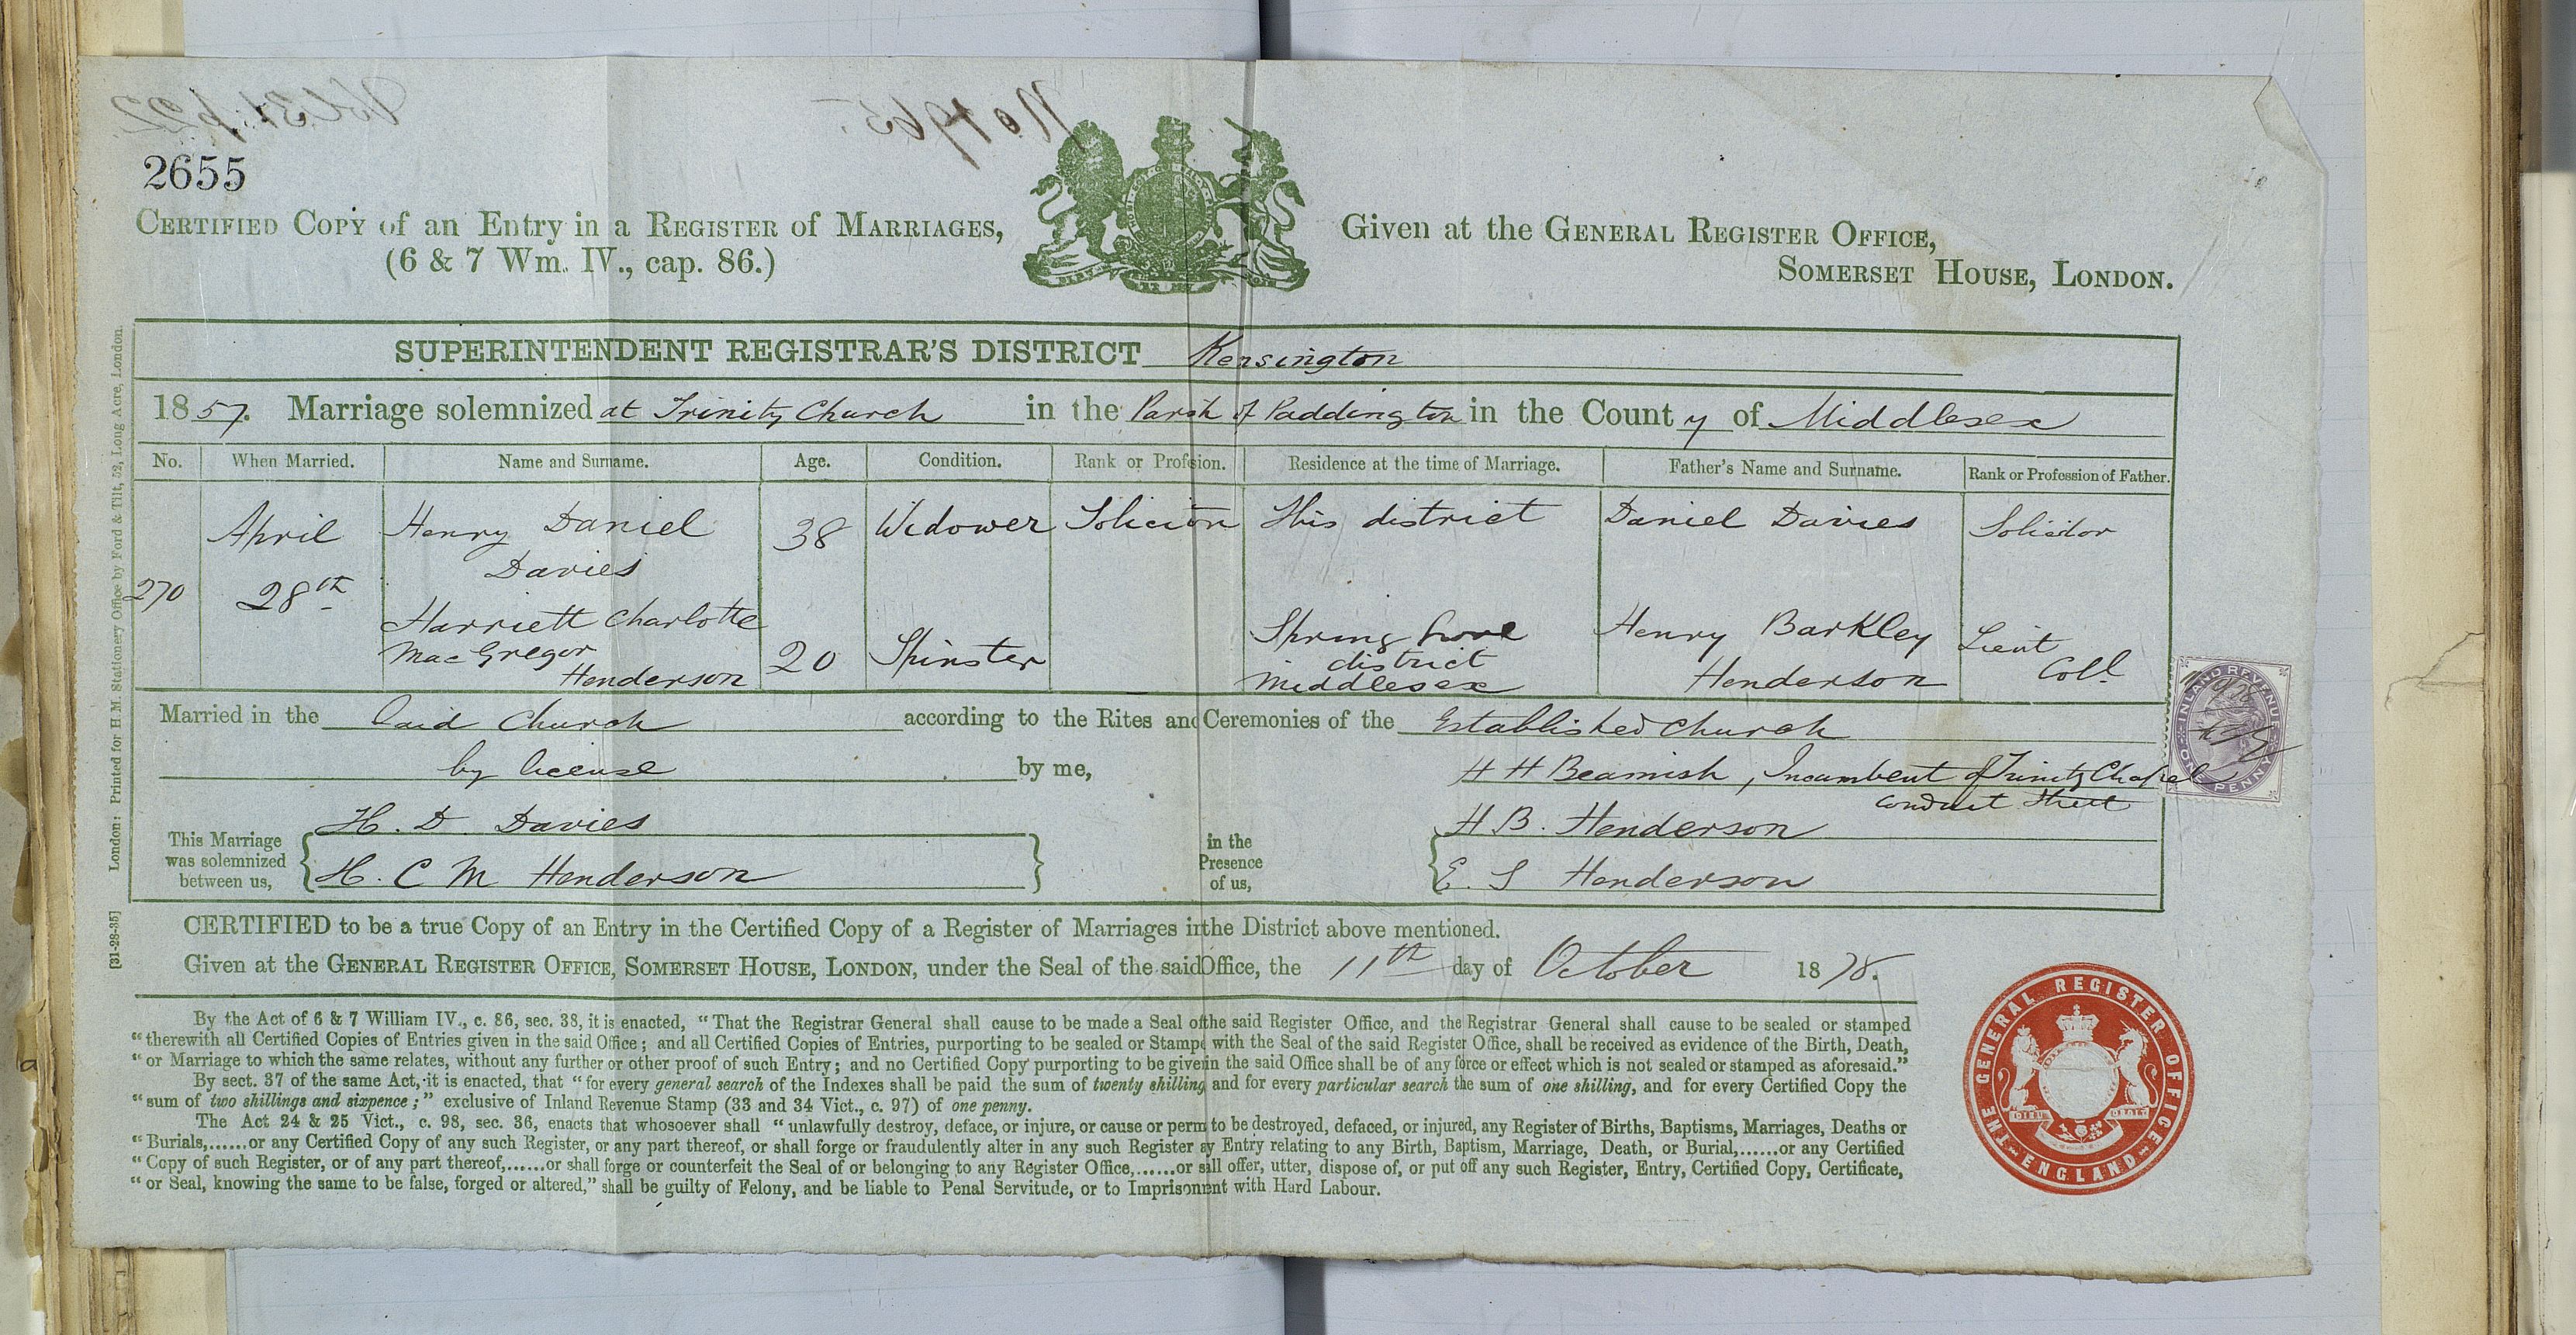 2655
CERTIFIED COPY of an Entry in a REGISTER of MARRIAGES,
(6 & 7 Wm. IV., cap. 86.)
Given at the GENERAL REGISTER OFFICE,
SOMERSET HOUSE, LONDON.
SUPERINTENDENT REGISTRAR'S DISTRICT Kensington
1857. Marriage solemnized at Trinity Church in the Parish of Paddington in the County of Middlesex
No. When Married. Name and Surname. Age. Condition. Rank or Profesion. Residence at the time of Marriage. Father's Name and Surname. Rank or Profession of Father.
270 April 28th
Henry Daniel Davies 38 Widower Solicitor This district Daniel Davies Solicitor
Harriett Charlotte MacGregor Henderson 20 Spinster Spring Grove district Middlesex Henry Barkley Henderson Lieut Coll
Married in the said Church according to the Rites and Ceremonies of the Established Church
by license by me, H H Beamish, Incumbent of Trinity Chapel
Conduit Street
This Marriage was solemnized between us,
H. D. Davies
H. C M Henderson
in the Presence of us,
H B. Henderson
E. S Henderson
CERTIFIED to be a true Copy of an Entry in the Certified Copy of a Register of Marriages in the District above mentioned.
Given at the GENERAL REGISTER OFFICE, SOMERSET HOUSE, LONDON, under the Seal of the said Office, the 11th day of October 1878.
By the Act of 6 & 7 William IV., c. 86, sec. 38, it is enacted, "That the Registrar General shall cause to be made a Seal of the said Register Office, and the Registrar General shall cause to be sealed or stamped
"therewith all Certified Copies of Entries given in the said Office; and all Certified Copies of Entries, purporting to be sealed or Stampe with the Seal of the said Register Office, shall be received as evidence of the Birth, Death,
"or Marriage to which the same relates, without any further or other proof of such Entry; and no Certified Copy purporting to be given in the said Office shall be of any force or effect which is not sealed or stamped as aforesaid."
By sect. 37 of the same Act, it is enacted, that "for every general search of the Indexes shall be paid the sum of twenty shilling and for every particular search the sum of one shilling, and for every Certified Copy the
"sum of two shillings and sixpence;" exclusive of Inland Revenue Stamp (33 and 34 Vict., c. 97) of one penny.
The Act 24 & 25 Vict., c. 98, sec. 36, enacts that whosoever shall "unlawfully destroy, deface, or injure, or cause or perm to be destroyed, defaced, or injured, any Register of Births, Baptisms, Marriages, Deaths or
"Burials,......or any Certified Copy of any such Register, or any part thereof, or shall forge or fraudulently alter in any such Register ay Entry relating to any Birth, Baptism, Marriage, Death, or Burial,......or any Certified
"Copy of such Register, or of any part thereof,......or shall forge or counterfeit the Seal of or belonging to any Register Office,......or sall offer, utter, dispose of, or put off any such Register, Entry, Certified Copy, Certificate,
"or Seal, knowing the same to be false, forged or altered," shall be guilty of Felony, and be liable to Penal Servitude, or to Imprisonment with Hard Labour.
London: Printed for H.M. Stationery Office by Ford & Tilt, 52, Long Acre, London.
[31-28-35]
INLAND REVENUE
ONE PENNY
THE GENERAL REGISTER OFFICE
ENGLAND